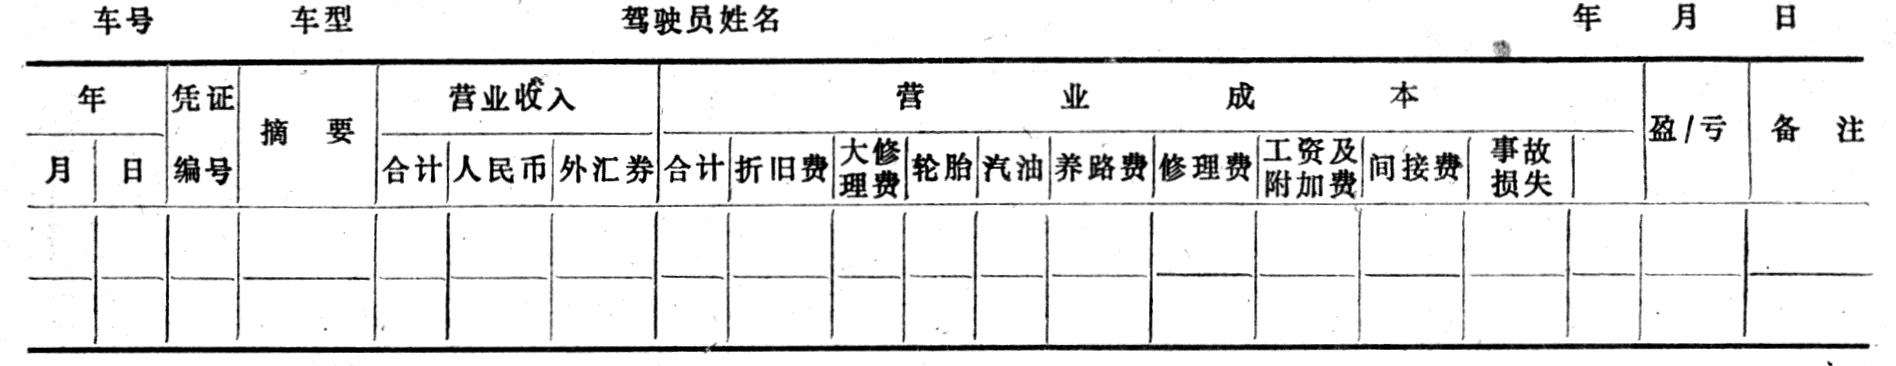 车号 车型 驾驶员姓名 年 月 日
年 凭证 营业收入 营业成本
摘要 盈/亏 备注
月 日 编号 合计 人民币 外汇券 合计 折旧费 大修理费 轮胎 汽油 养路费 修理费 工资及附加费 间接费 事故损失